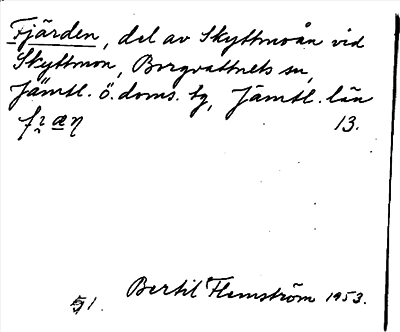 Fjärden, del av Skyttmoån vid
Skyttmon, Borgvattnets sn,
Jämtl. ö. doms. tg, Jämtl. län
13.
51. Bertil Flemström 1953.